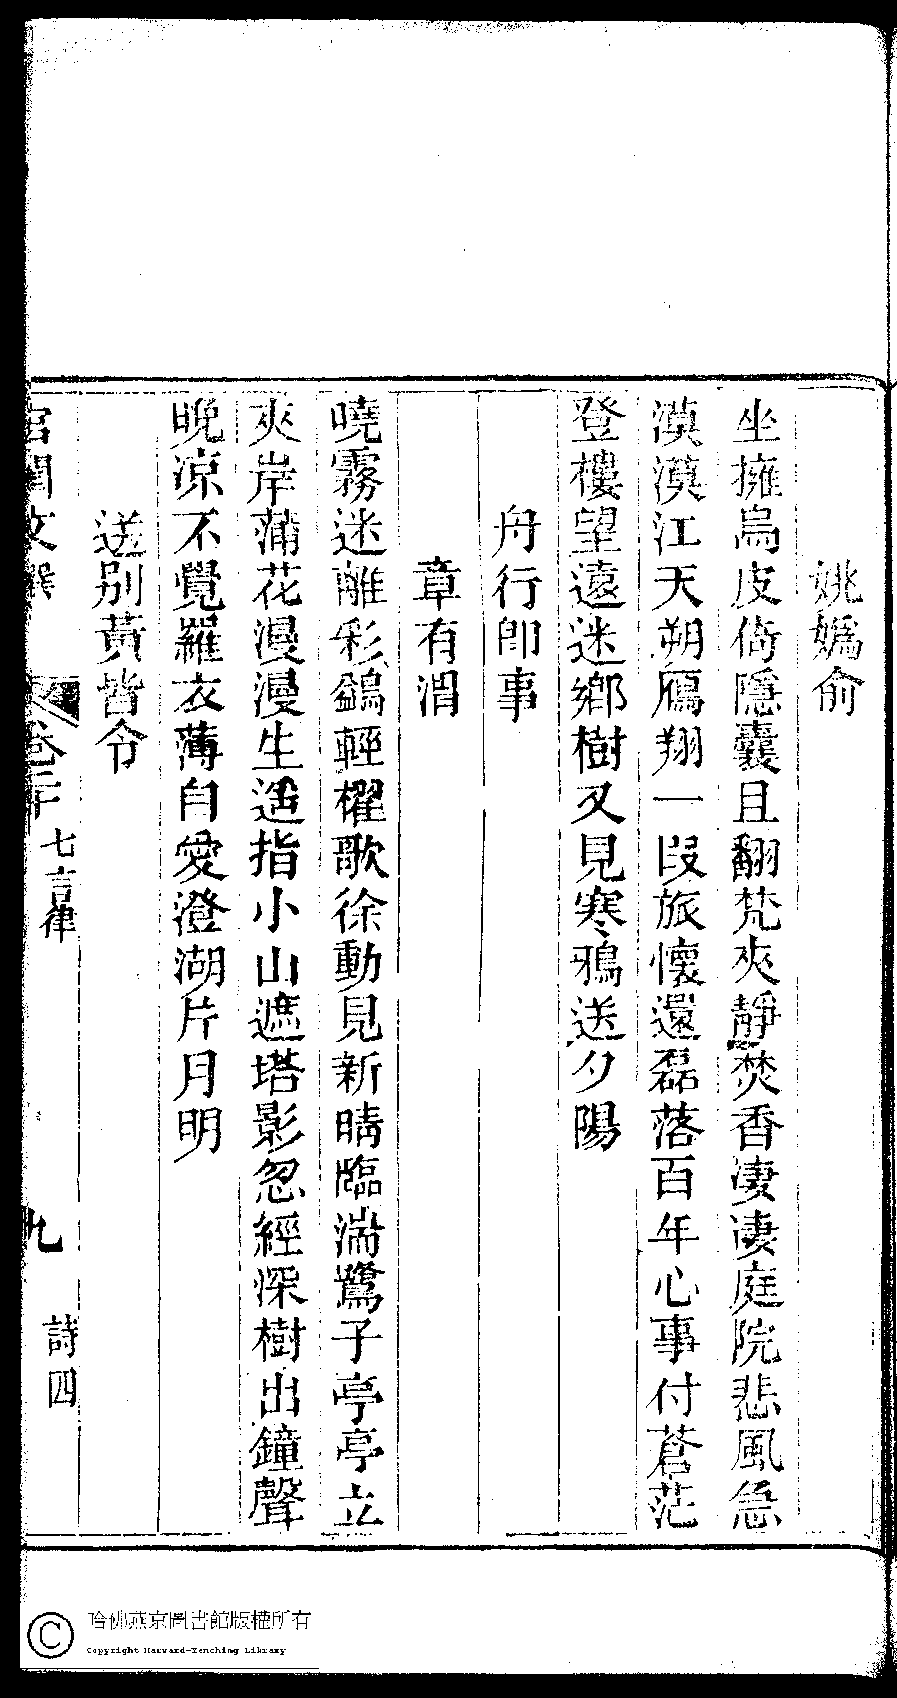 姚媯俞
坐擁烏皮倚隱囊且翻梵夾靜焚香淒淒庭院悲風急
漠漠江天朔鴈翔一段旅懷還磊落百年心事付蒼茫
登樓望遠迷鄉樹又見寒鴉送夕陽
舟行卽事
章有渭
曉霧迷離彩鷁輕櫂歌徐動見新晴臨湍鷺子亭亭立
夾岸蒲花漫漫生遥指小山遮塔影忽經深樹出鐘聲
晚凉不覺羅衣薄自愛澄湖片月明
送別黃皆令
宮閨文選
卷二十
七言律
九
詩四
哈佛燕京圖書館版權所有
Copyright Harvard-Yenching Library